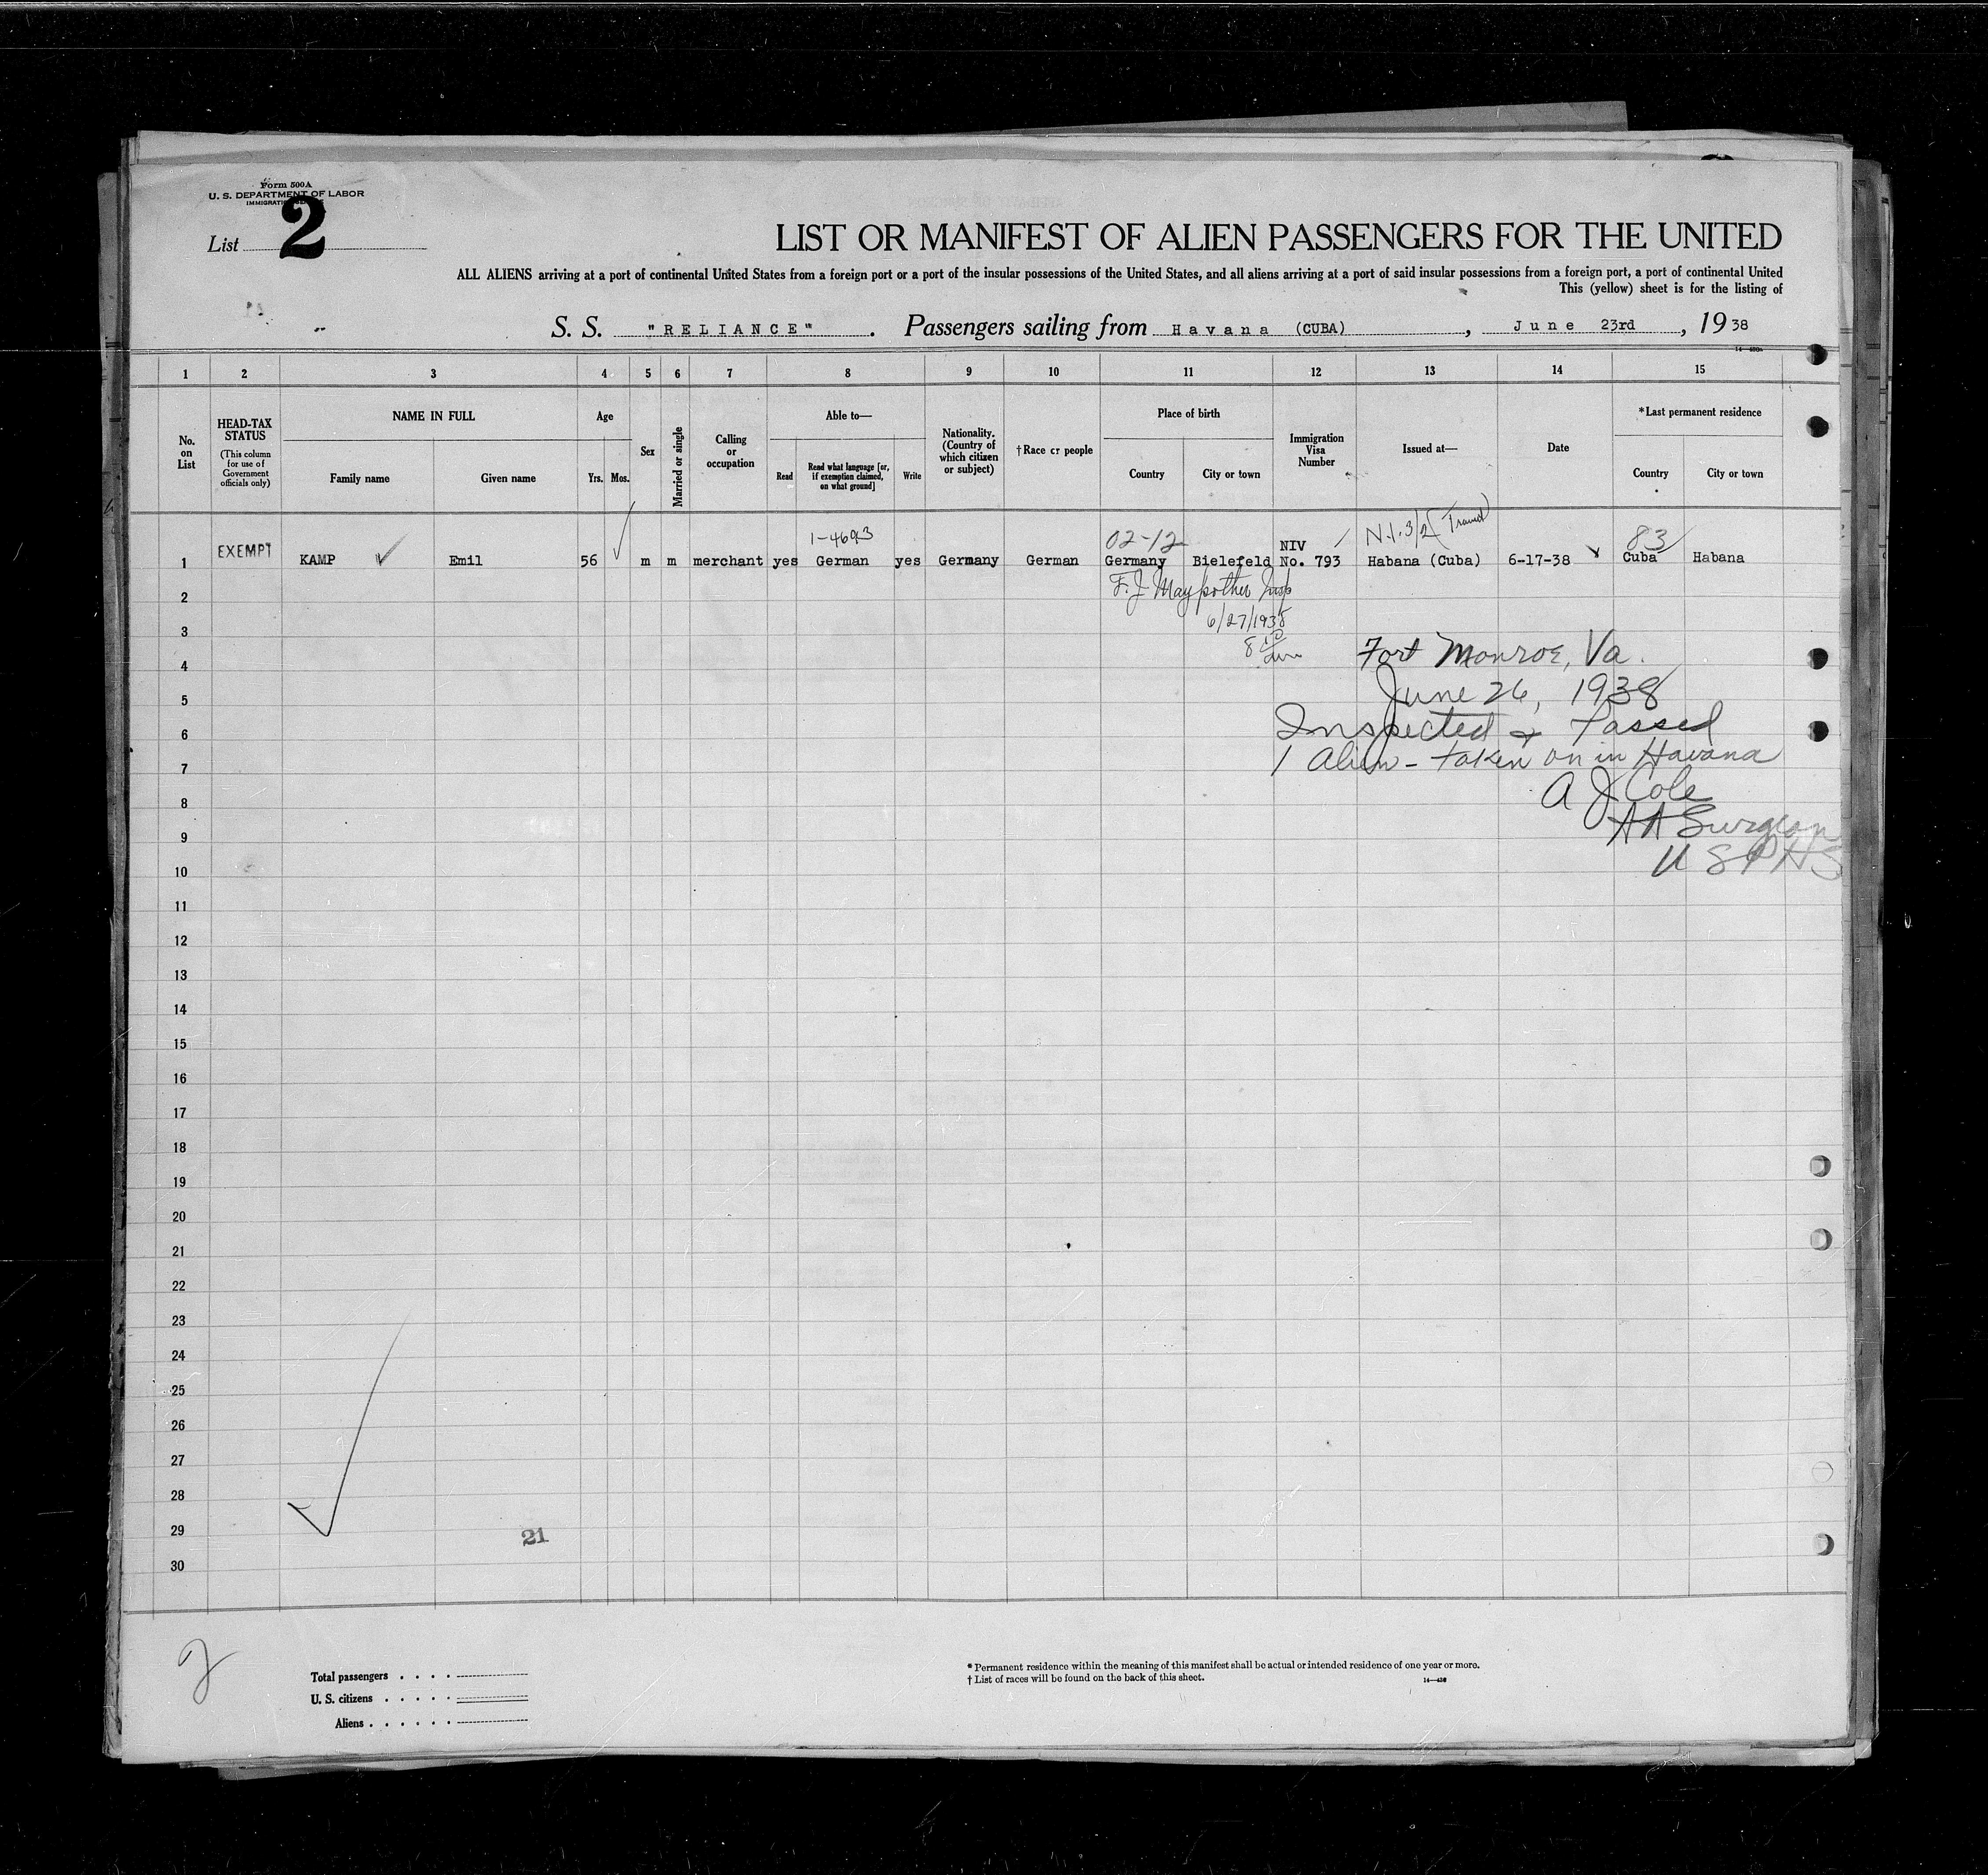 Form 500A
U. S. DEPARTMENT OF LABOR
List 2
LIST OR MANIFEST OF ALIEN PASSENGERS FOR THE UNITED
ALL ALIENS arriving at a port of continental United States from a foreign port or a port of the insular possessions of the United States, and all aliens arriving at a port of said insular possessions from a foreign port, a port of continental United
This (yellow) sheet is for the listing of
S. S. "RELIANCE". Passengers sailing from Havana (CUBA), June 23rd, 1938
1 2 3 4 5 6 7 8 9 10 11 12 13 14 15
No. on List
HEAD-TAX STATUS
(This column for use of Government officials only)
NAME IN FULL
Family name
Given name
Age
Yrs. Mos.
Sex
Married or single
Calling or occupation
Able to—
Read
Read what language [or, if exemption claimed, on what ground]
Write
Nationality. (Country of which citizen or subject)
†Race or people
Place of birth
Country
City or town
Immigration Visa Number
Issued at—
Date
*Last permanent residence
Country
City or town
02-12 83
1 EXEMPT KAMP Emil 56 m m merchant yes German yes Germany German Germany Bielefeld NIV No. 793 Habana (Cuba) 6-17-38 Cuba Habana
2
6/27/1938
3
Fort Monroe, Va.
4
June 26, 1938
5
Inspected & Passed
6
1 Alien - taken on in Havana
7
A J Cole
8
A A Surgeon
9
U S P H S
10
11
12
13
14
15
16
17
18
19
20
21
22
23
24
25
26
27
28
29
21
30
2
Total passengers
U. S. citizens
Aliens
* Permanent residence within the meaning of this manifest shall be actual or intended residence of one year or more.
† List of races will be found on the back of this sheet.